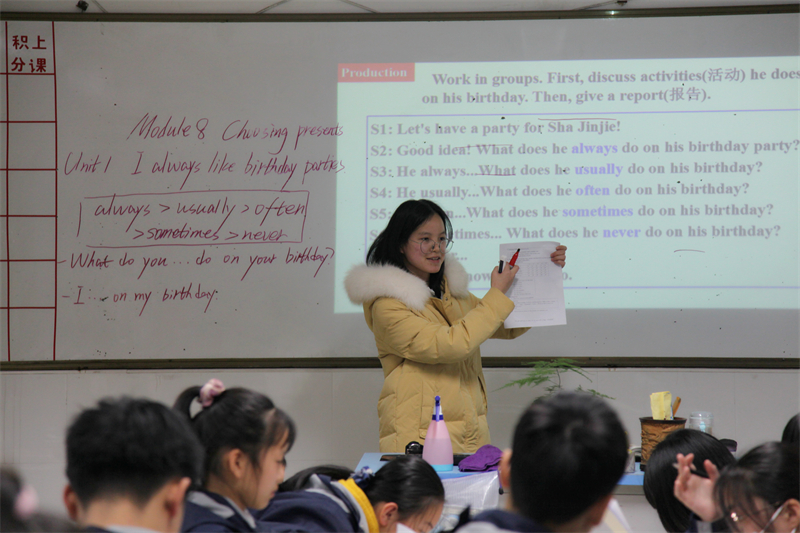 积上
分课
Module 8 Choosing presents
Unit 1 I always like birthday parties
always > usually > often
> sometimes > never
- What do you ... do on your birthday?
- I ... on my birthday.
Production
Work in groups. First, discuss activities(活动) he does
on his birthday. Then, give a report(报告).
S1: Let's have a party for Sha Jinjie!
S2: Good idea! What does he always do on his birthday party?
S3: He always...What does he usually do on his birthday?
S4: He usually...What does he often do on his birthday?
S5: ...What does he sometimes do on his birthday?
times... What does he never do on his birthday?